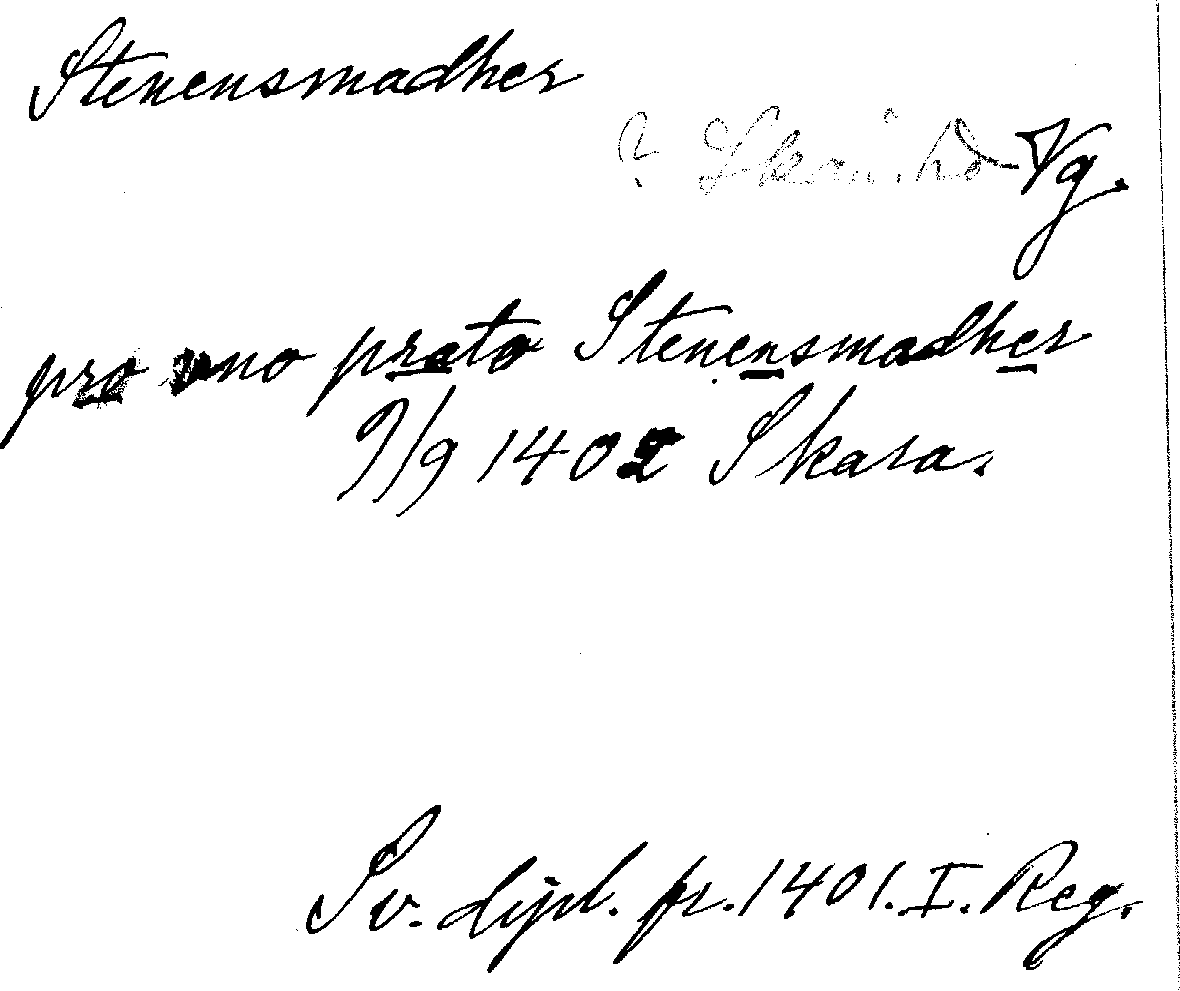 Stenensmadher
? Skån. hd Vg.
pro vno prato Stenensmadher
9/9 1402 Skara.
Sv. dipl. fr. 1401. I. Reg.